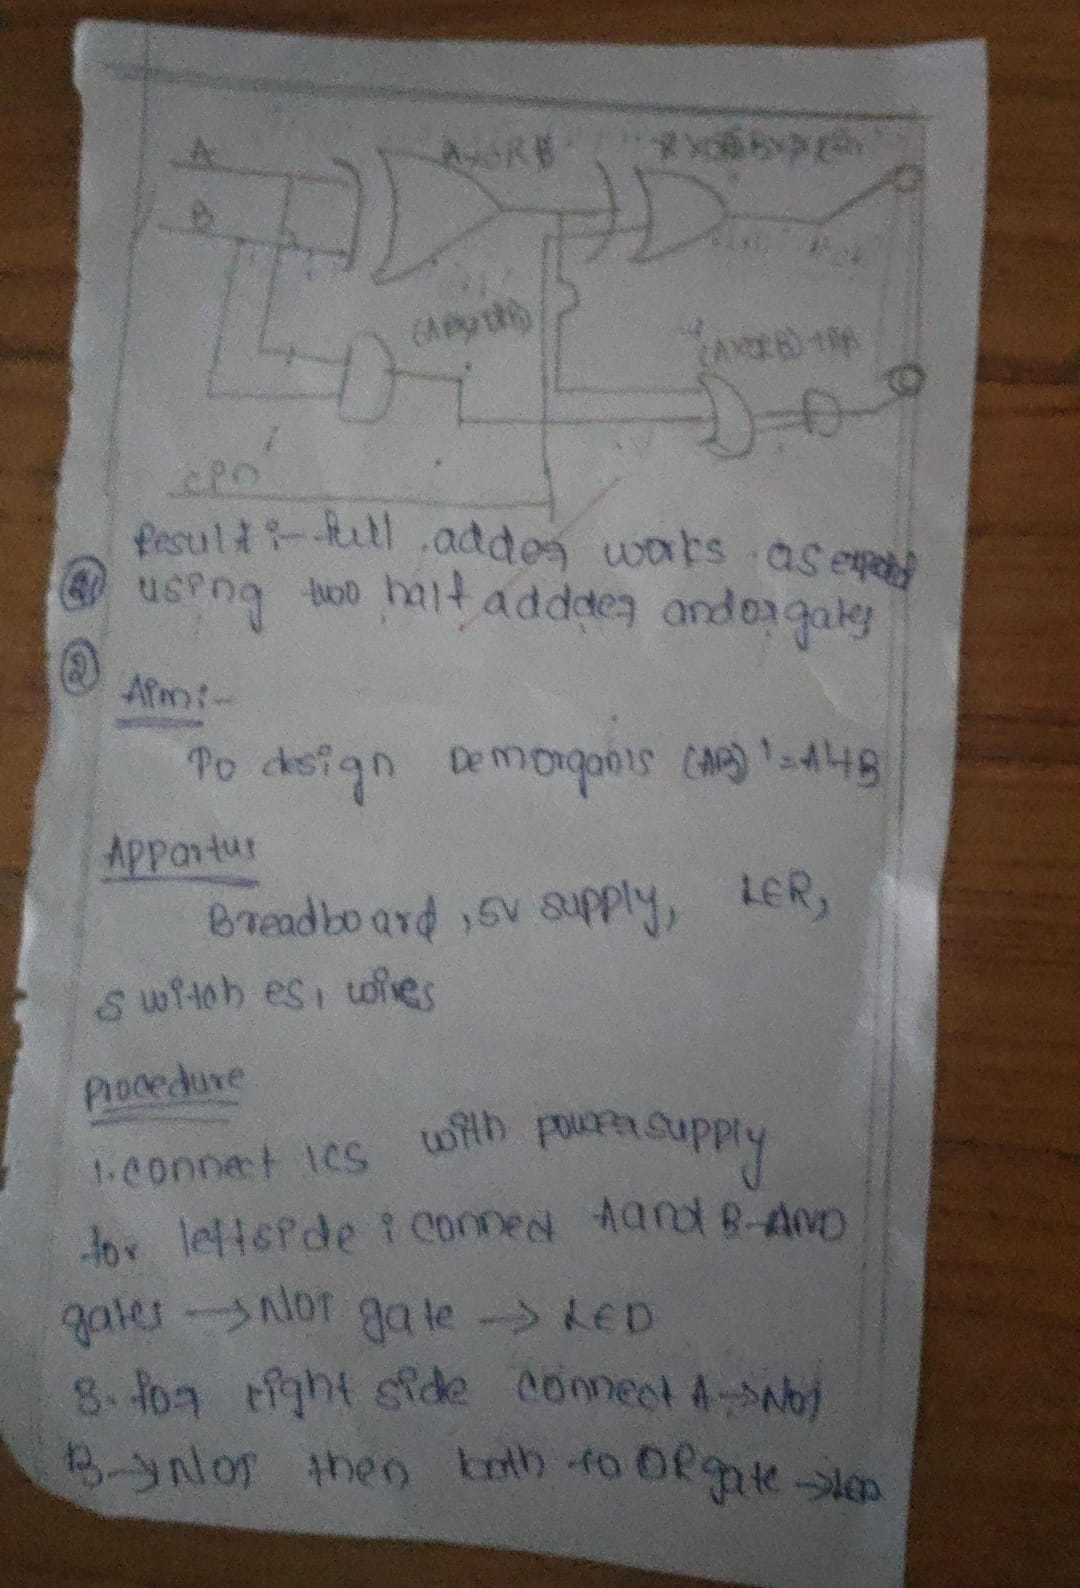 A
AXORB
B
(AXORB)
cpn
Result :- full adder works as expected
using two half addder and or gates
②
Aim:-
To design Demorganis (AB)'=A'+B
Appartus
Breadboard, 5V supply, LER,
switches, wires
Procedure
1. connect ICS with power supply
for leftside : connect A and B-AND
gates → Not gate → LED
3. for right side connect A→Not
B→Not then both to OR gate →LED